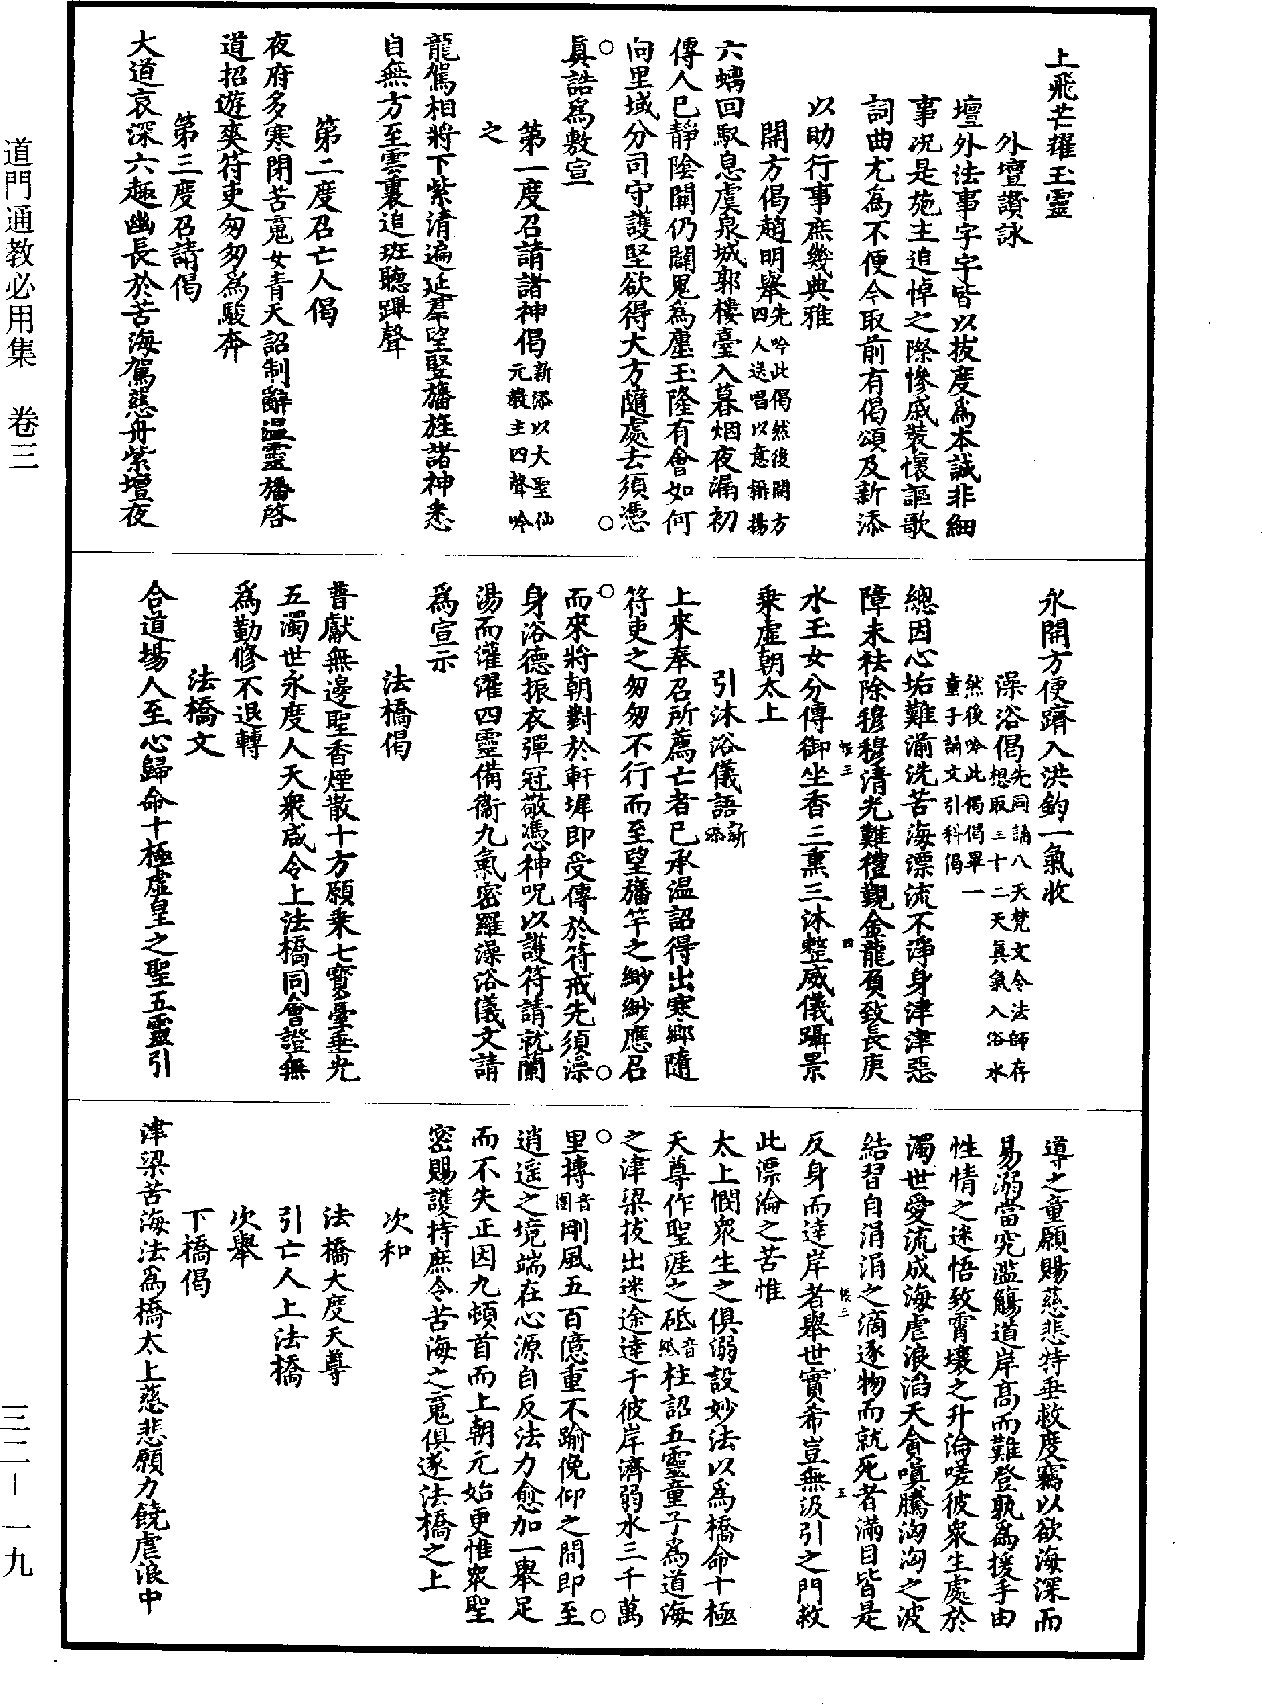 上飛芒耀玉靈
外壇讚詠
壇外法事字字皆以拔度為本誠非細
事况是施主追悼之際慘戚裝懷謳歌
詞曲尤為不便今取前有偈頌及新添
以助行事庶幾典雅
開方偈趙明舉先吟此偈然後開方四人送唱以意稱揚
六螭回馭息虞泉城郭樓臺入暮烟夜漏初
傳人已靜陰關仍闢鬼為塵玉隆有會如何
向里域分司守護堅欲得大方隨處去須憑
眞誥為敷宣
第一度召請諸神偈新添以大聖仙元教主四聲吟
之
龍駕相將下紫清遍延羣望竪旛旌諸神悉
自無方至雲裏追班聽蹕聲
第二度召亡人偈
夜府多寒閉苦魂女青天詔制酆溫靈旛啓
道招遊爽符吏匆匆為駿奔
第三度召請偈
大道哀深六趣幽長於苦海駕慈舟紫壇夜
永開方便躋入洪鈞一氣收
澡浴偈先同誦八天梵文令法師存想取三十二天眞氣入浴水
然後吟此偈偈畢一童子誦文引科偈
總因心垢難湔洗苦海漂流不淨身津津惡
障未袪除穆穆清光難禮覲金龍負致長庚
水玉女分傳御坐香三熏三沐整威儀躡景
乘虛朝太上
引沐浴儀語新添
上來奉召所薦亡者已承溫詔得出寒鄉隨
符吏之匆匆不行而至望旛竿之緲緲應召
而來將朝對於軒墀即受傳於符戒先須澡
身浴德振衣彈冠敬憑神呪以護符請就蘭
湯而灌濯四靈備衞九氣密羅澡浴儀文請
為宣示
法橋偈
普獻無邊聖香煙散十方願乘七寶臺垂光
五濁世永度人天衆咸令上法橋同會證無
為勤修不退轉
法橋文
合道場人至心歸命十極虛皇之聖五靈引
導之童願賜慈悲特垂救度竊以欲海深而
易溺當究濫觴道岸高而難登孰為援手由
性情之迷悟致霄壤之升淪嗟彼衆生處於
濁世愛流成海虐浪滔天貪嗔騰洶洶之波
結習自涓涓之滴逐物而就死者滿目皆是
反身而達岸者舉世實希豈無汲引之門救
此漂淪之苦惟
太上憫衆生之俱溺設妙法以為橋命十極
天尊作聖涯之砥音紙柱詔五靈童子為道海
之津梁拔出迷途達于彼岸濟弱水三千萬
里摶音團剛風五百億重不踰俛仰之間即至
逍遥之境端在心源自反法力愈加一舉足
而不失正因九頓首而上朝元始更惟衆聖
密賜護持庶令苦海之魂俱遂法橋之上
次和
法橋大度天尊
引亡人上法橋
次舉
下橋偈
津梁苦海法為橋太上慈悲願力饒虐浪中
道門通教必用集 卷三
三二—一九